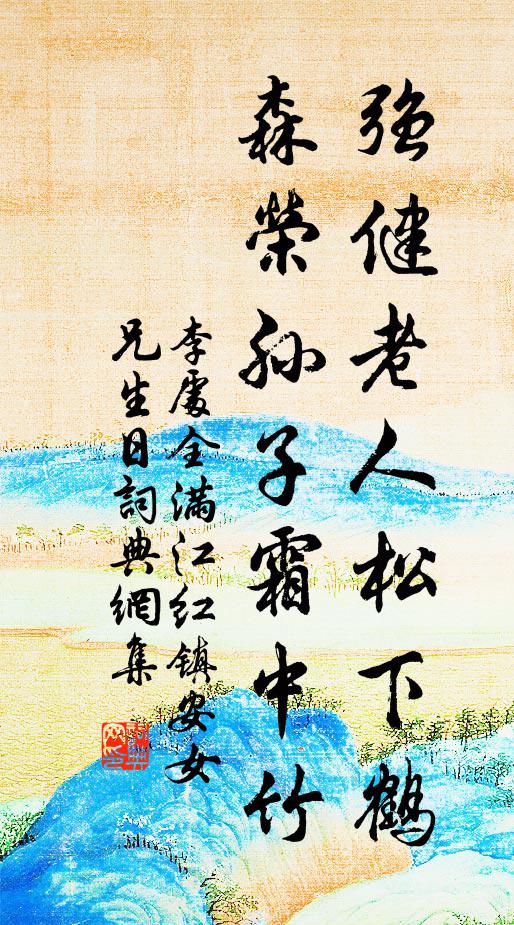 強健老人松下鶴
森榮孫子霜中竹
李處全滿江红鎮安女
兄生日詞典網集